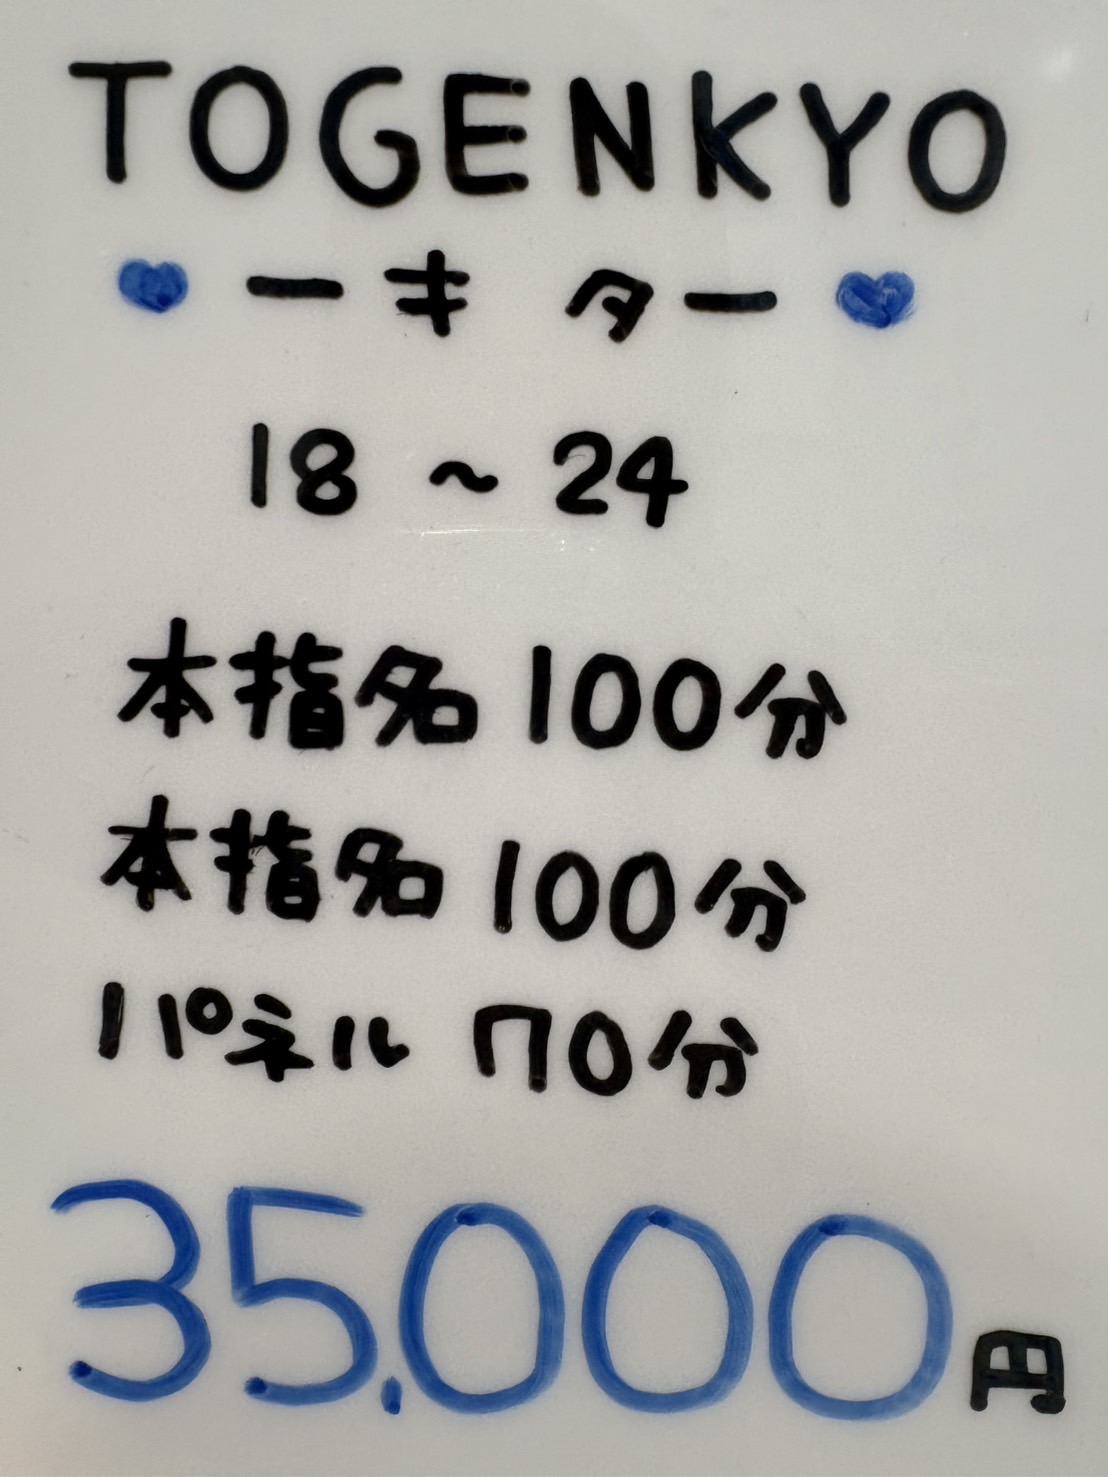 TOGENKYO
💙ーキ ター💙
18 ～ 24
本指名 100分
本指名 100分
パネル 70分
35,000円